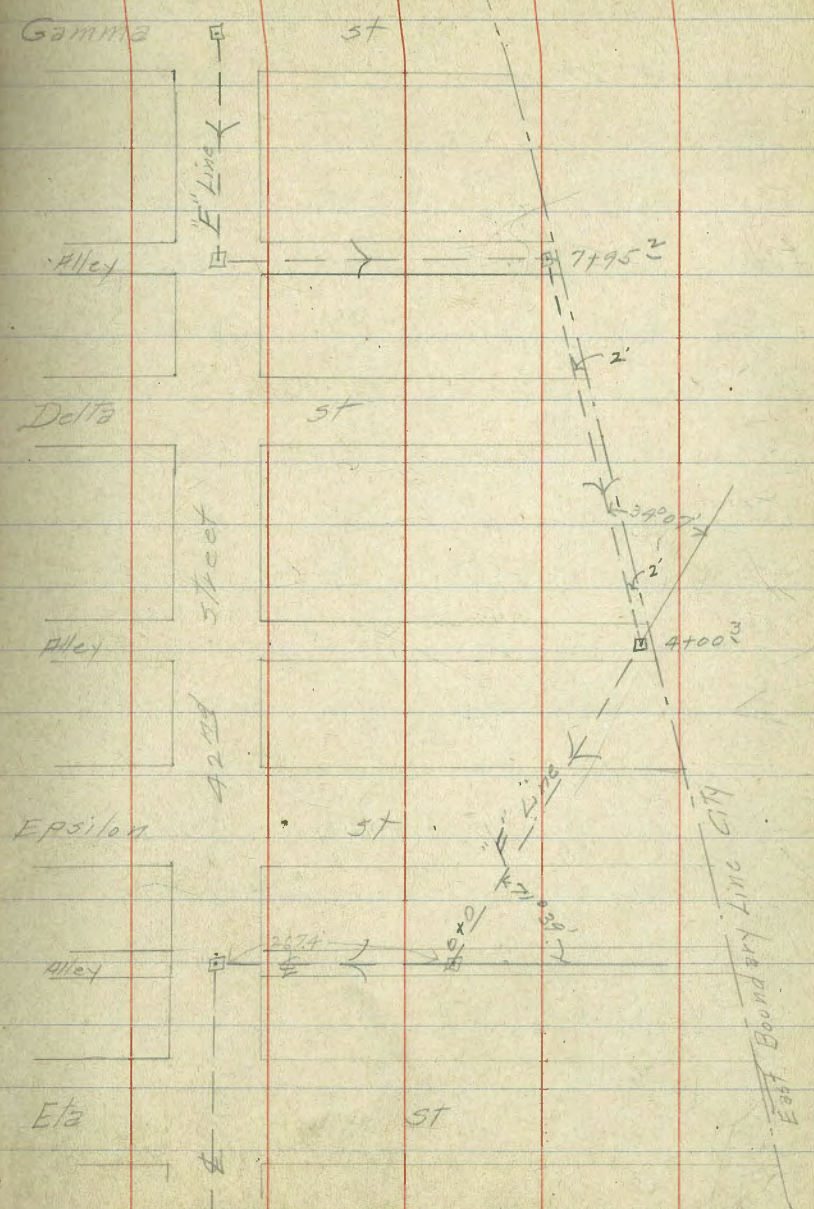 Gamma st
"E" Line
Alley
7+95 2
2'
Delta st
34°07'
2'
42nd Street
Alley
4+00 3
"E" Line
Epsilon st
71°39'
0x0
267.4
Alley
℄
East Boundary Line City
Eta st
℄